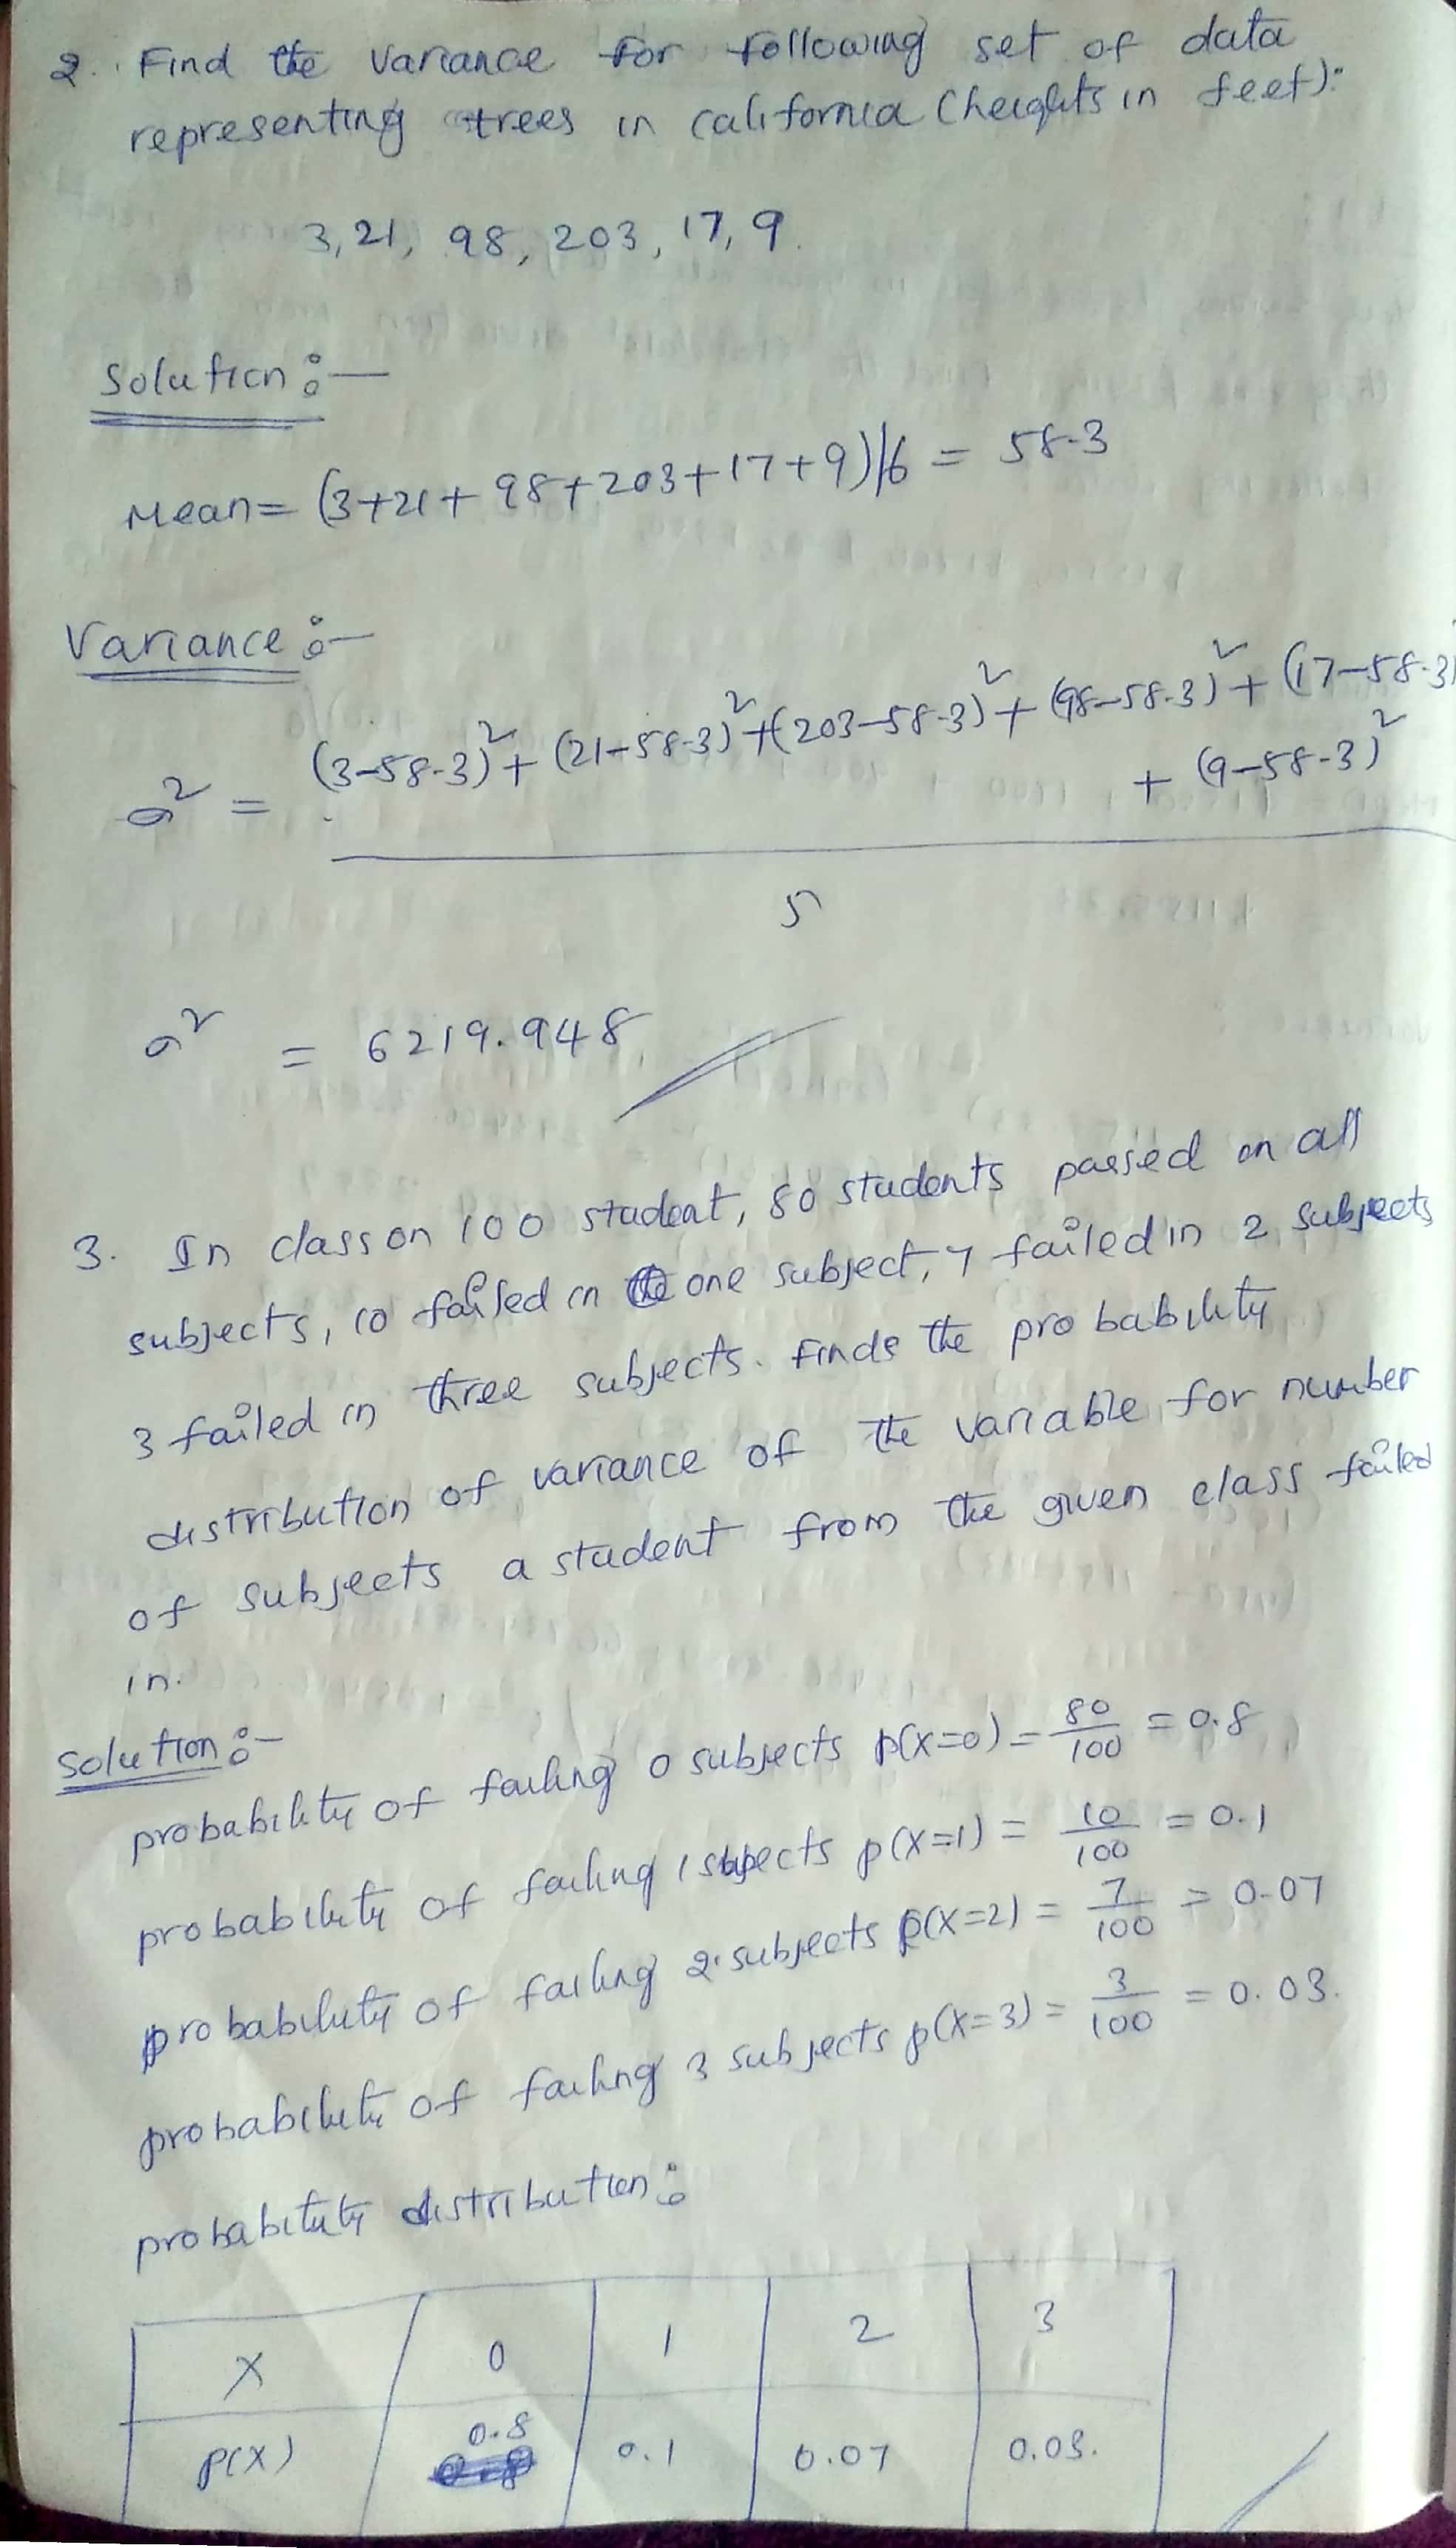 2. Find the variance for following set of data
representing trees in california (heights in feet):-
3, 21, 98, 203, 17, 9.
Solution :-
Mean = (3+21+98+203+17+9)/6 = 58.3
Variance :-
(3-58.3)² + (21-58.3)² + (203-58.3)² + (98-58.3)² + (17-58.3)
+ (9-58.3)²
σ² =
5
σ² = 6219.948
3. In class on 100 student, 80 students passed on all
subjects, 10 failed in one subject, 7 failed in 2 subjects
3 failed in three subjects. Finds the probability
distribution of variance of the variable for number
of subjects a student from the given class failed
in.
Solution :-
probability of failing 0 subjects p(x=0) = 80/100 = 0.8
probability of failing 1 subjects p(x=1) = 10/100 = 0.1
probability of failing 2 subjects p(x=2) = 7/100 = 0.07
probability of failing 3 subjects p(x=3) = 3/100 = 0.03.
probability distribution :
X 0 1 2 3
P(X) 0.8 0.1 0.07 0.03.